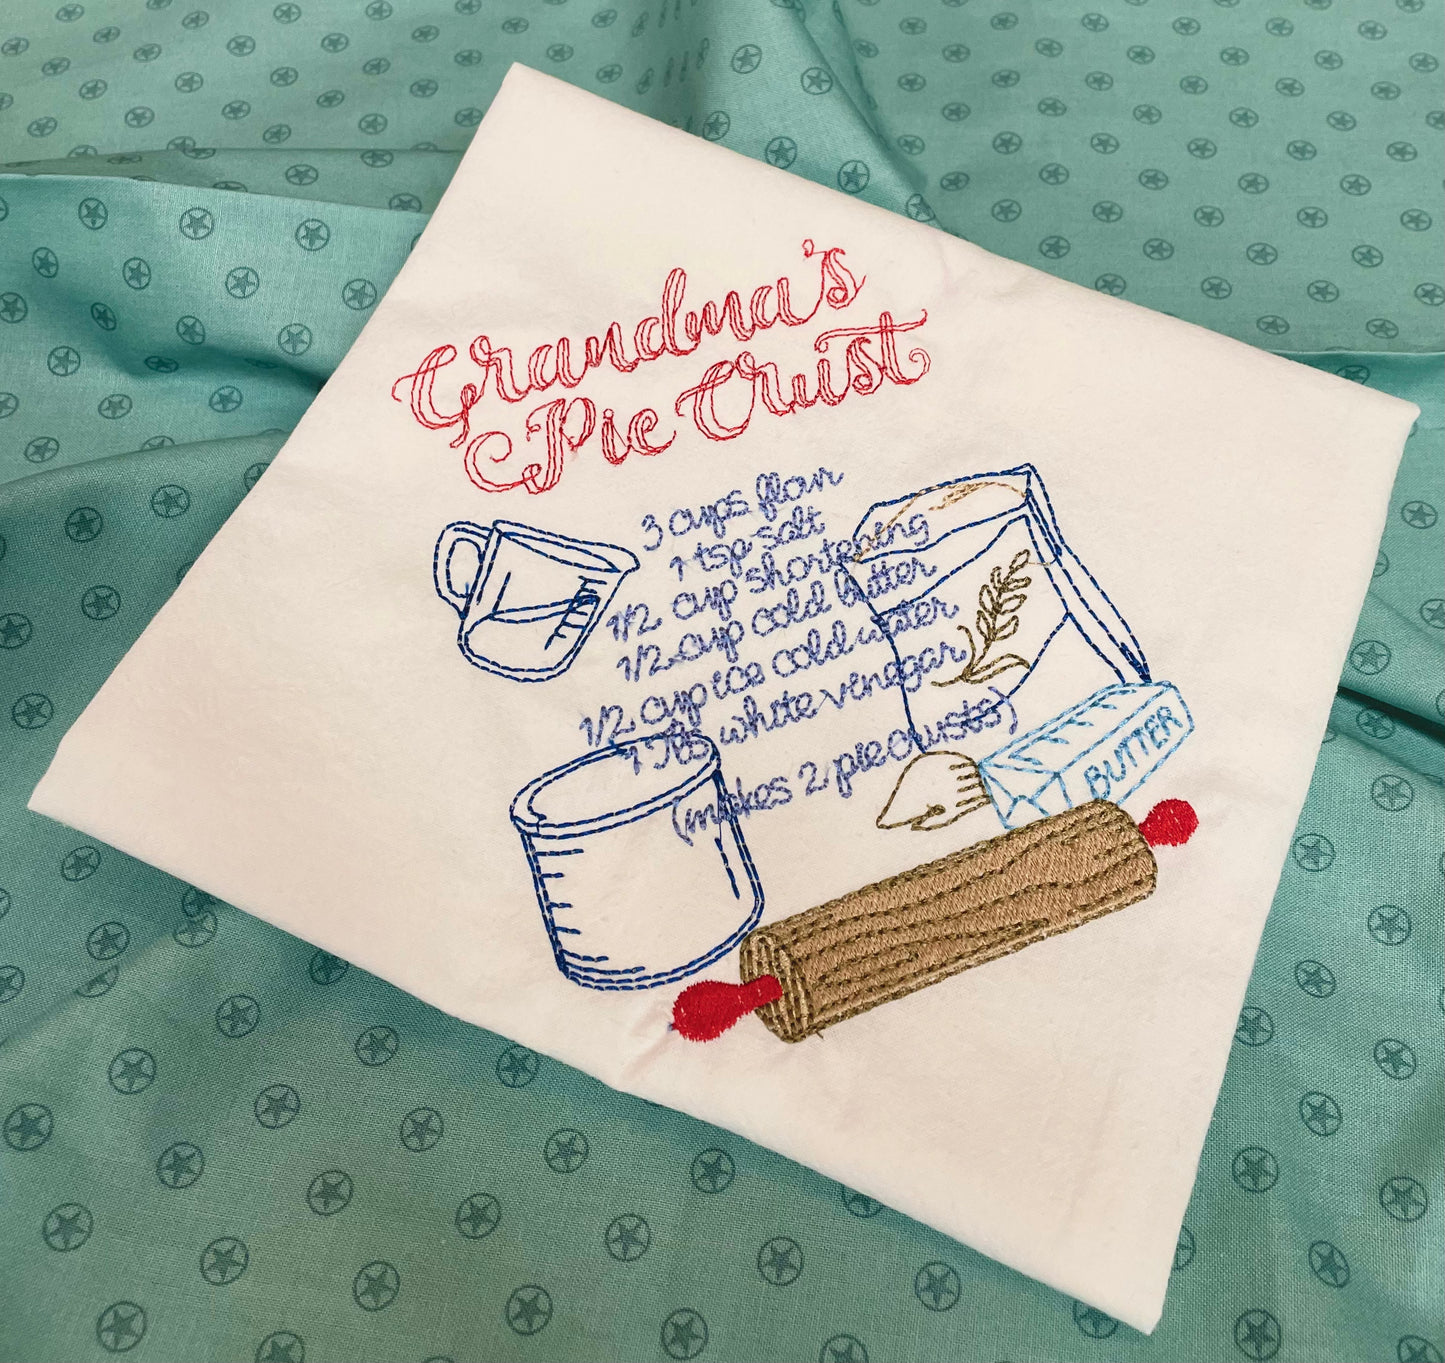 Grandma's
Pie Crust
3 cups flour
1 tsp salt
1/2 cup shortening
1/2 cup cold butter
1/2 cup ice cold water
1 Tbs white vinegar
(makes 2 pie crusts)
BUTTER